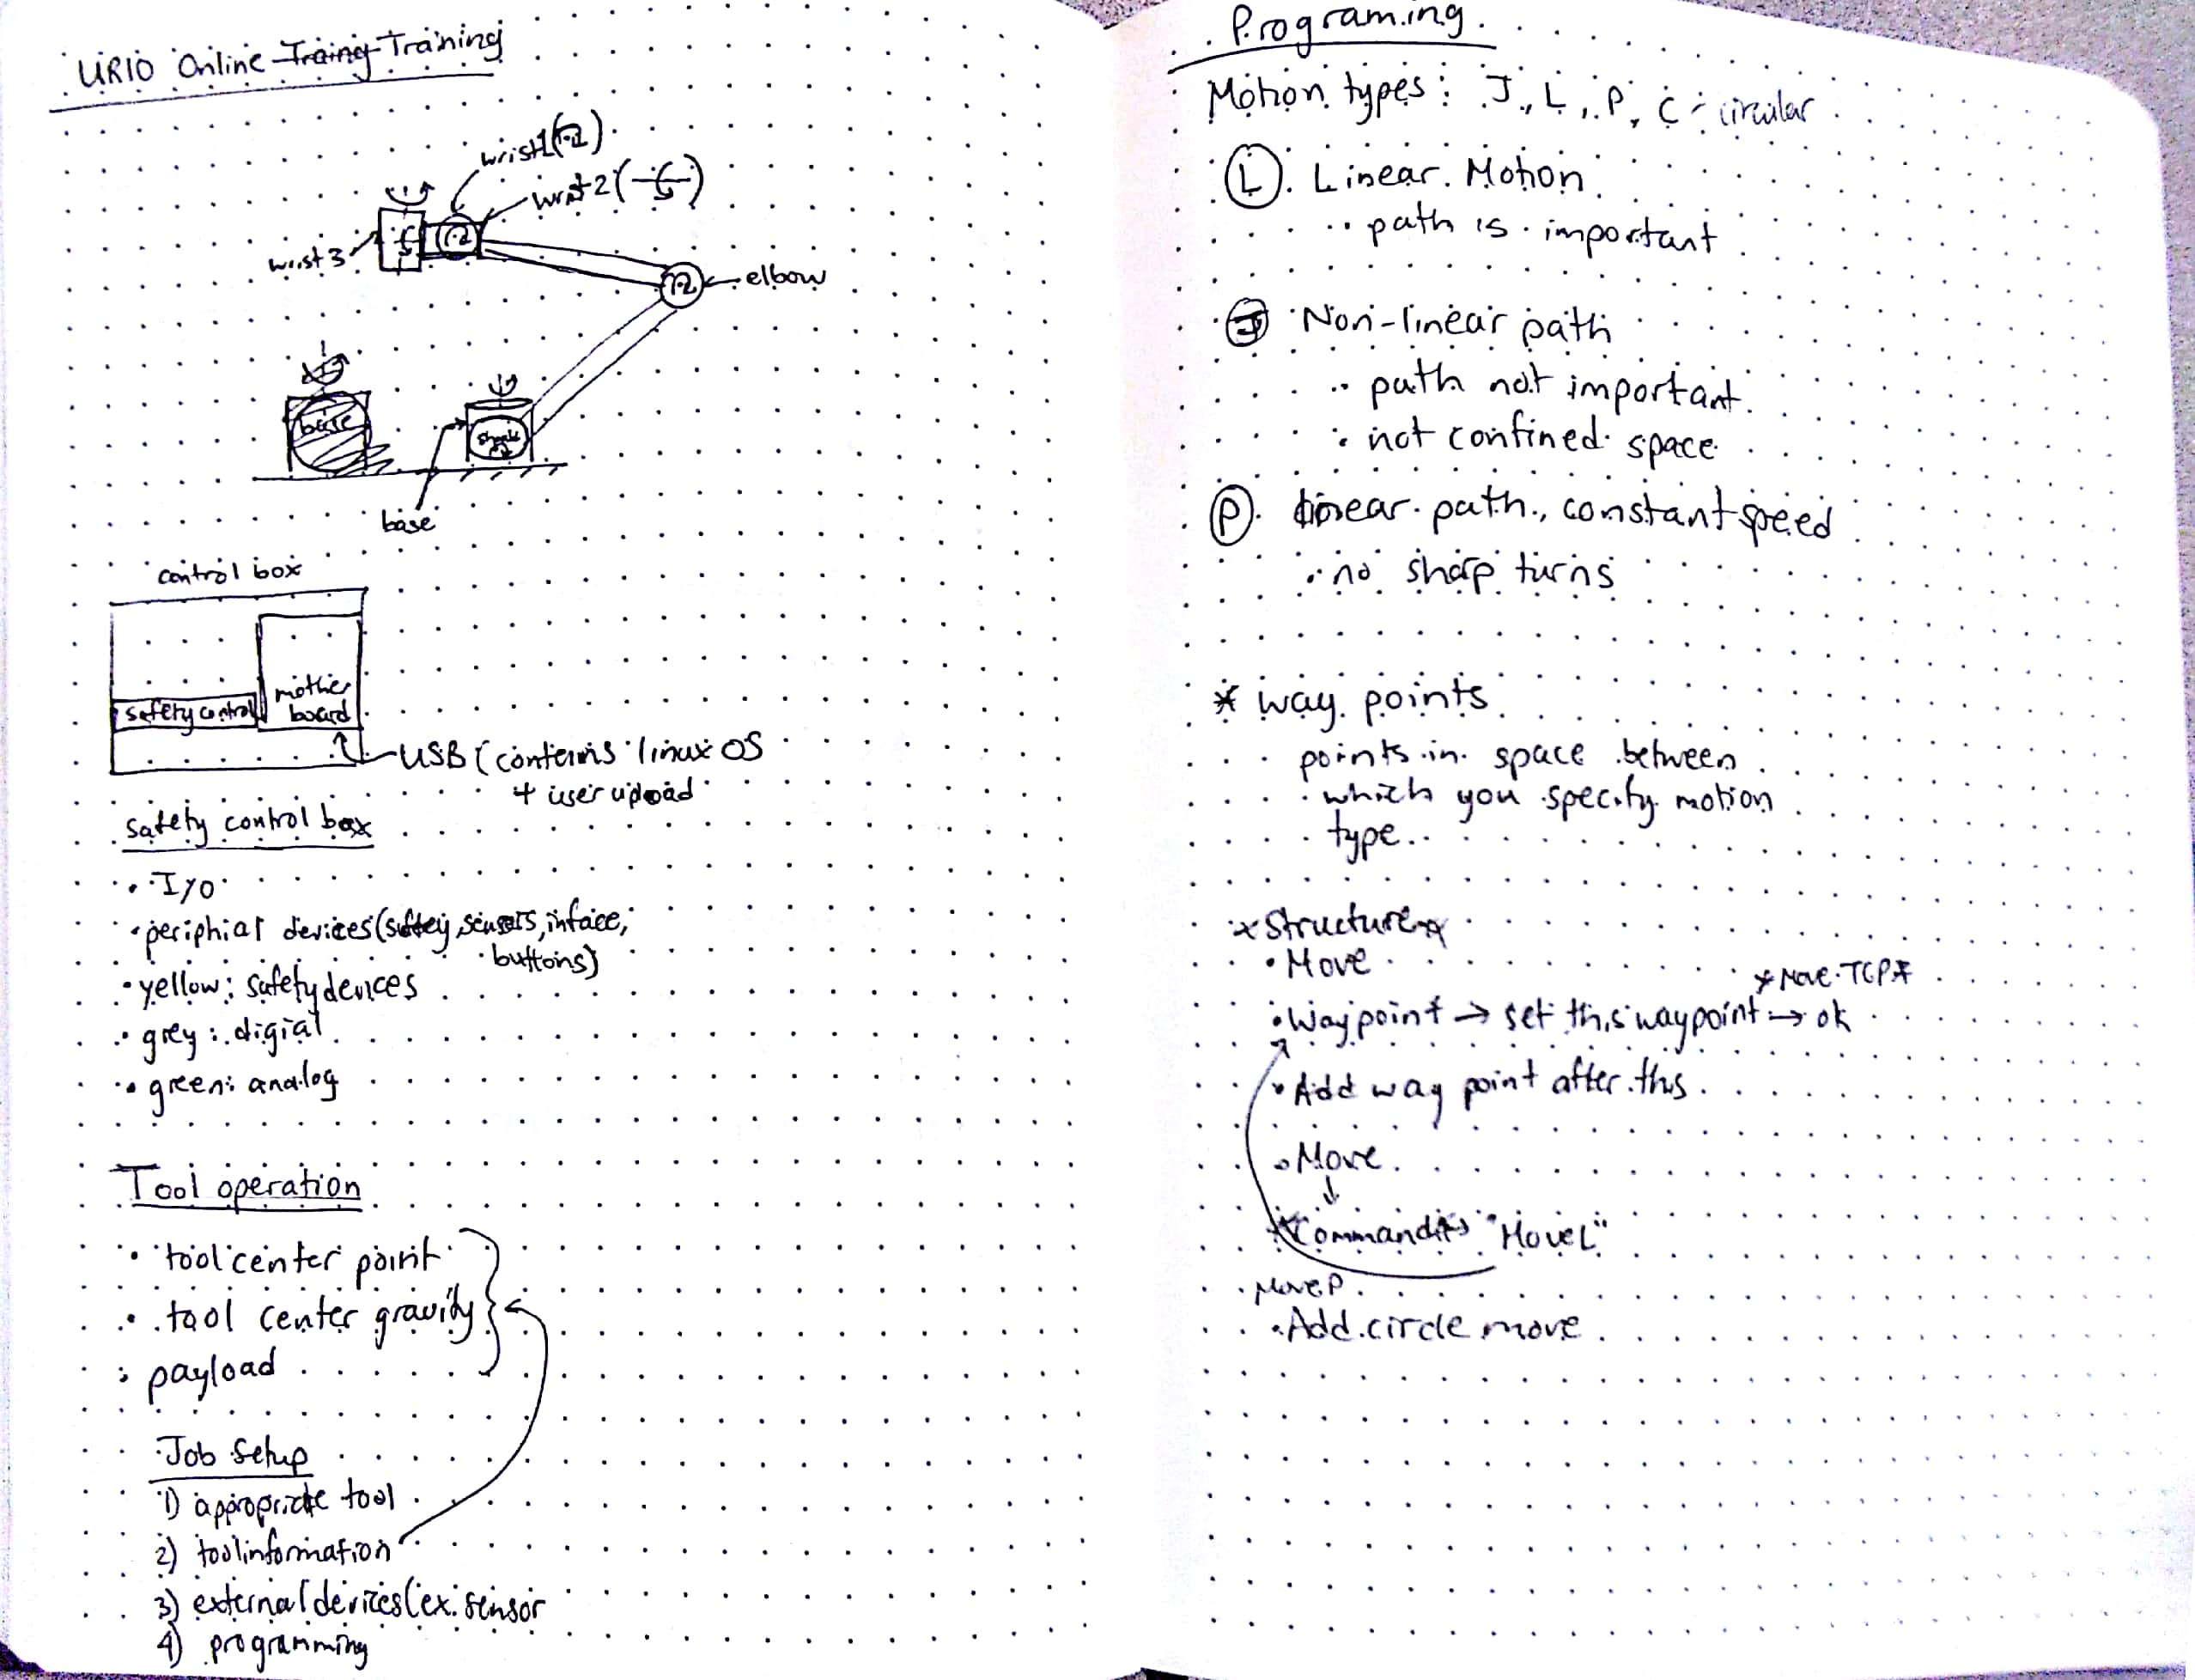 UR10 Online Traing Training
wrist1
wrist2
wrist 3
elbow
base
base
control box
mother
board
safety control
USB (contains linux OS
+ user upload
safety control box
• I/O
• periphial devices (saftey, sensors, inface,
buttons)
• yellow: safety devices
• grey: digial
• green: analog
Tool operation
• tool center point
• tool center gravity
• payload
Job Setup
1) appropriate tool
2) tool information
3) external devices (ex. sensor
4) programming
Programing
Motion types: J, L, P, C - circular
L Linear Motion
• path is important
J Non-linear path
• path not important
• not confined space
P linear path, constant speed
• no sharp turns
* way points
points in space between
which you specify motion
type.
* Structure *
• Move
* Move TCP *
• Waypoint → set this waypoint → ok
• Add way point after this
• Move
↓
"MoveL"
MoveP
• Add circle move